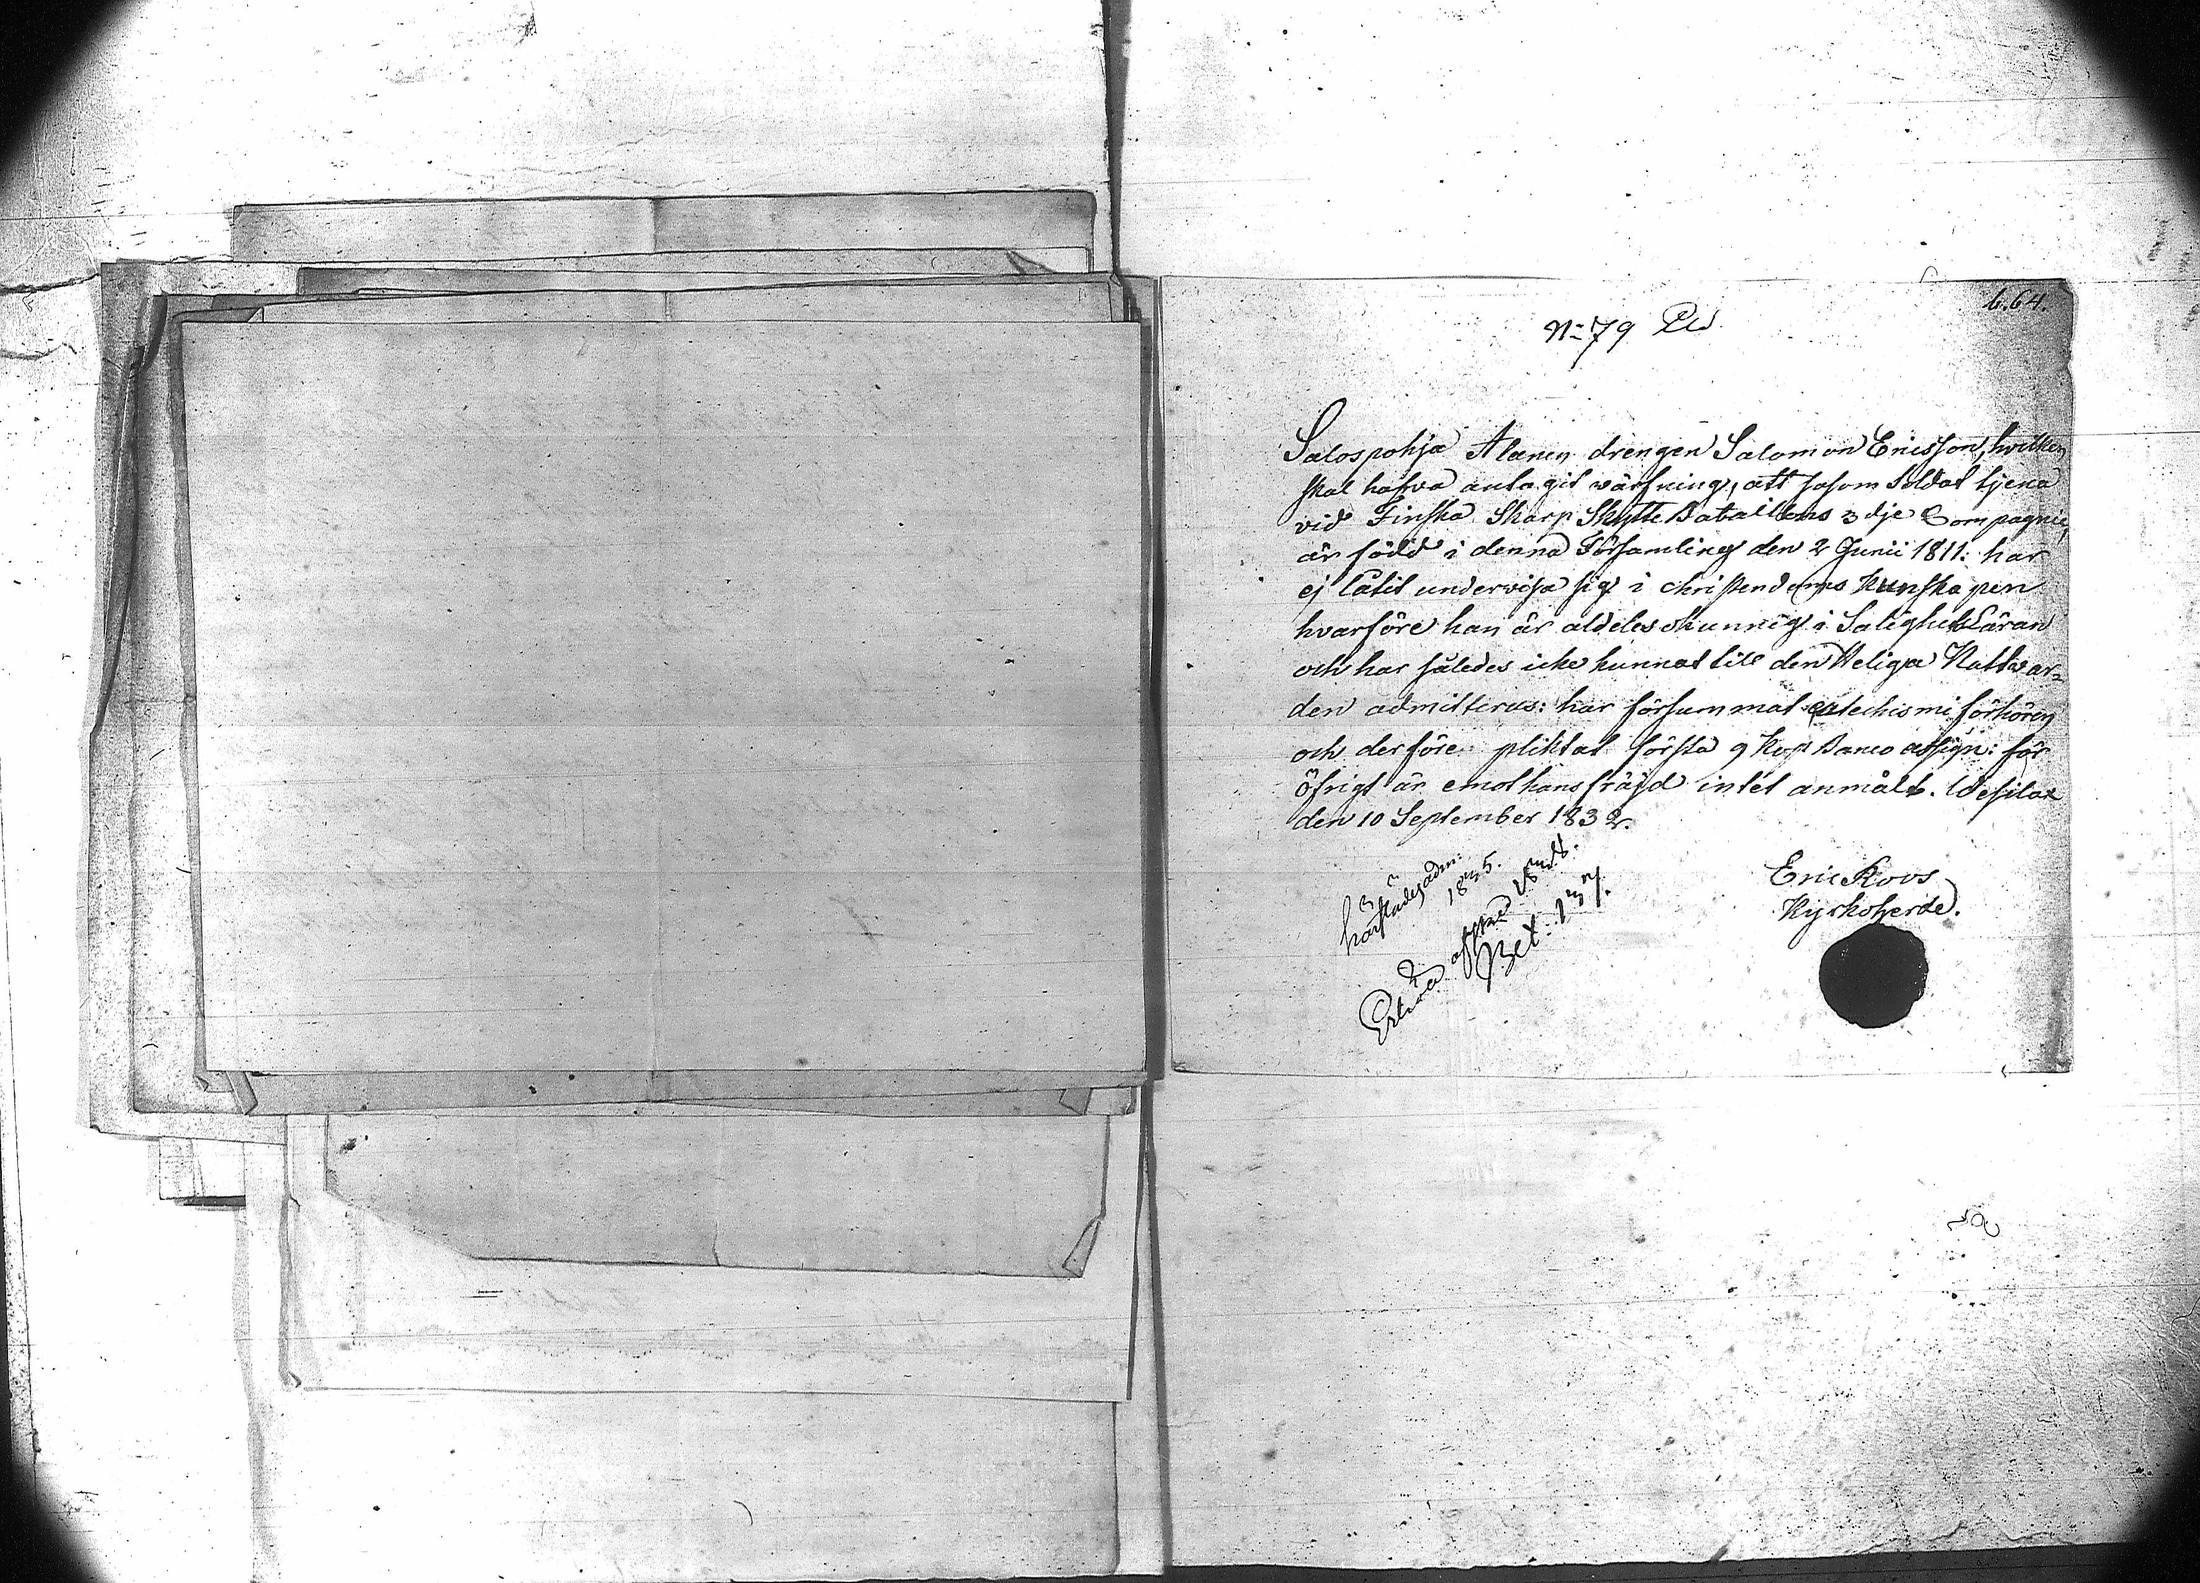 6.64.
N:79
Salospohja Alanen drengen Salomon Ericsson, hvilken
skal hafva antagit wärfning, att såsom Soldat tjena
vid Finska Skarp Skytte Bataillons 3dje Compagnie,
är född i denna Församling den 2 Junii 1811: har
ej låtit undervisa sig i christendoms kunskapen
hvarföre han är aldeles okunnig i Salighets Läran
och har således icke kunnat till den Heliga Nattvar=
den admitteras: har försummat catechismi förhören
och derföre pliktat första 9 kop Banco assign: för
öfrigt är emot hans fräjd intet anmält. Wesilax
den 10 September 1832.
Eric Roos
Kyrkoherde.
1835.
Bet. 137.